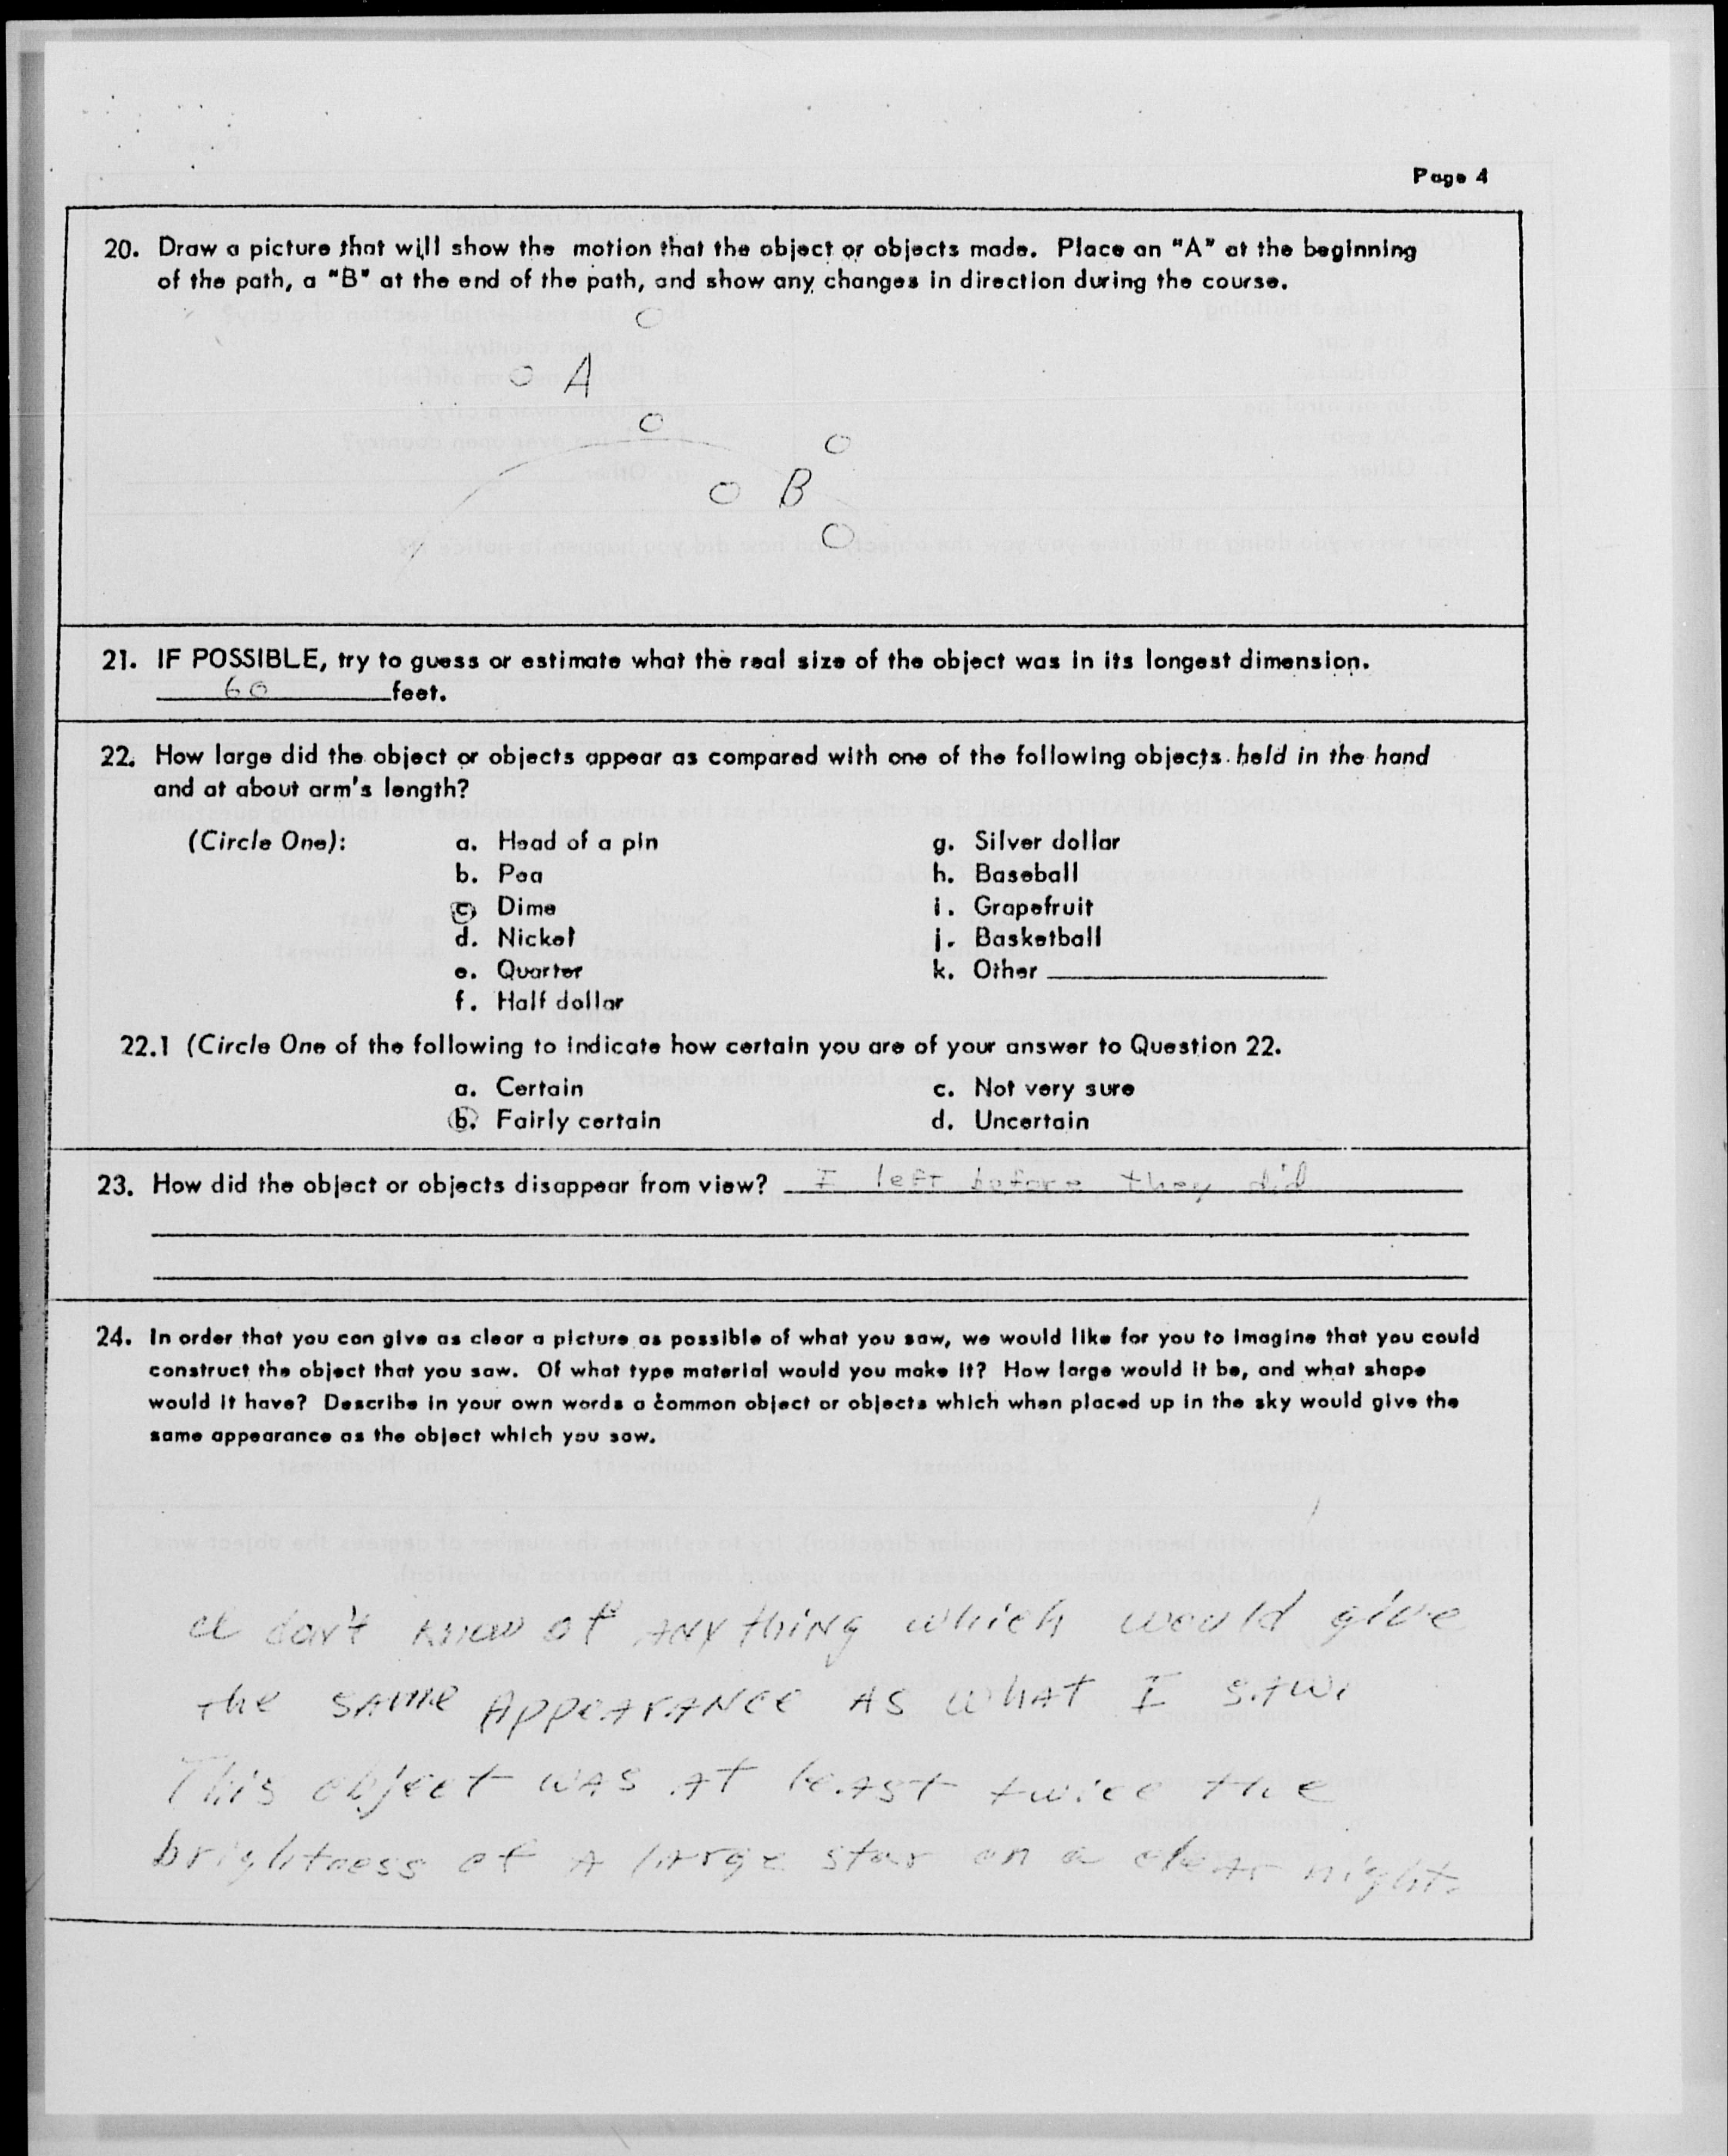 Page 4
20. Draw a picture that will show the motion that the object or objects made. Place an "A" at the beginning
of the path, a "B" at the end of the path, and show any changes in direction during the course.
A
B
21. IF POSSIBLE, try to guess or estimate what the real size of the object was in its longest dimension.
60 feet.
22. How large did the object or objects appear as compared with one of the following objects held in the hand
and at about arm's length?
(Circle One): a. Head of a pin g. Silver dollar
b. Pea h. Baseball
c. Dime i. Grapefruit
d. Nickel j. Basketball
e. Quarter k. Other
f. Half dollar
22.1 (Circle One of the following to indicate how certain you are of your answer to Question 22.
a. Certain c. Not very sure
b. Fairly certain d. Uncertain
23. How did the object or objects disappear from view? I left before they did
24. In order that you can give as clear a picture as possible of what you saw, we would like for you to imagine that you could
construct the object that you saw. Of what type material would you make it? How large would it be, and what shape
would it have? Describe in your own words a common object or objects which when placed up in the sky would give the
same appearance as the object which you saw.
I don't know of anything which would give
the same appearance as what I saw.
This object was at least twice the
brightness of a large star on a clear night.